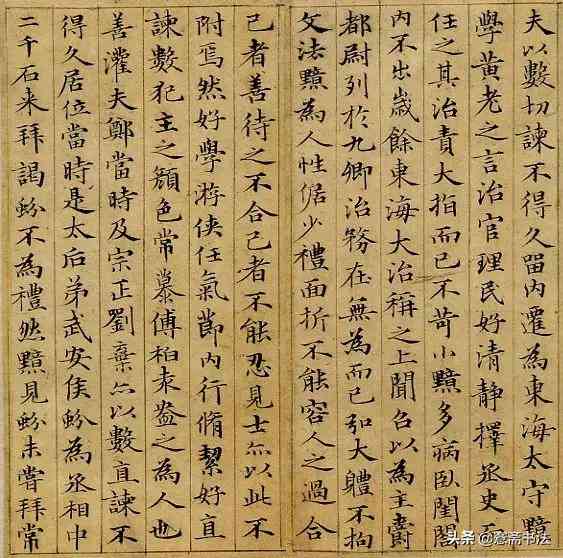 夫以數切諫不得久留內遷為東海太守黯
學黃老之言治官理民好清静擇丞史而
任之其治責大指而已不苛小黯多病臥閨閤
內不出歲餘東海大治稱之上聞召以為主爵
都尉列於九卿治務在無為而已弘大軆不拘
文法黯為人性倨少禮面折不能容人之過合
己者善待之不合己者不能忍見士亦以此不
附焉然好學游俠任氣節內行脩絜好直
諫數犯主之顏色常慕傅柏袁盎之為人也
善灌夫鄭當時及宗正劉棄亦以數直諫不
得久居位當時是太后弟武安侯蚡為丞相中
二千石来拜謁蚡不為禮然黯見蚡未嘗拜常
头条@登斋书法